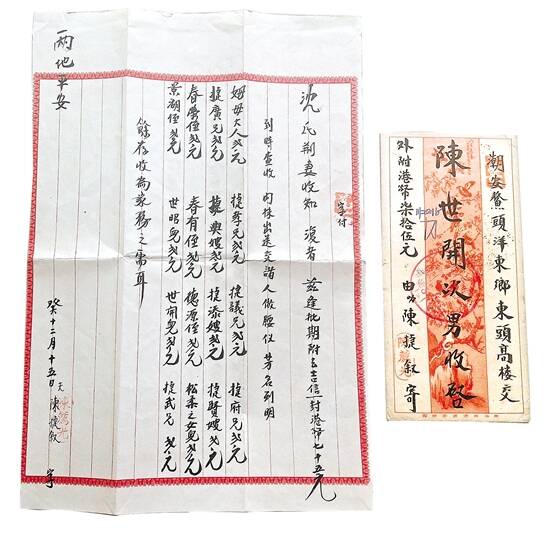 兩地平安
沈氏荊妻收知 復者 茲逢批期附去吉信一封港幣七十五元
到時查收 內抹出送交諸人做腰儀 芳名列明
姆母大人弍元 捷昇兄弍元 捷議兄弍元 捷府兄弍元
捷廣兄弍元 興嫂弍元 捷添嫂弍元 捷賢嫂弍元
春榮侄弍元 春有侄弍元 德源侄弍元 松柔之女兒弍元
侄弍元 世昭兒弍元 世開兒弍元 捷武兄弍元
餘存收為家務之需耳
癸十二月十五日 陳捷叙 字
字付
潮安鰲頭洋東鄉東頭高楼交
陳世開次男收啓
外附港幣柒拾伍元 由叻陳捷叙寄